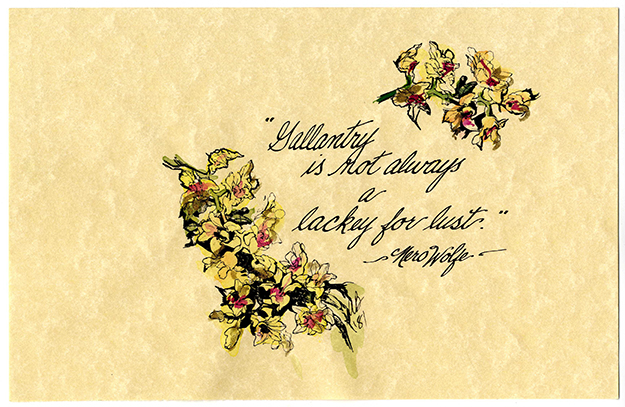 "Gallantry
is not always
a
lackey for lust."
~Nero Wolfe~